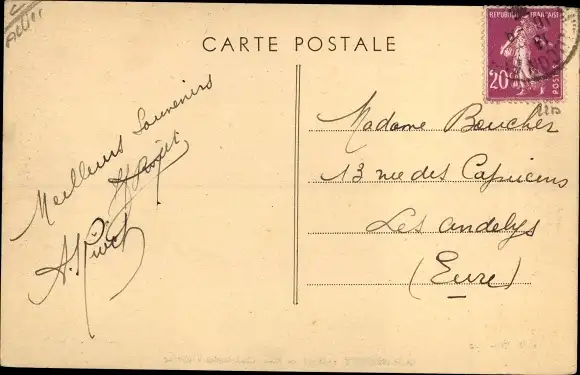 Allier
CARTE POSTALE
REPUBLIQUE FRANÇAISE
20
POSTES
Meilleurs Souvenirs
A. Rivet
Madame Boucher
13 rue des Capucins
Les andelys
(Eure)